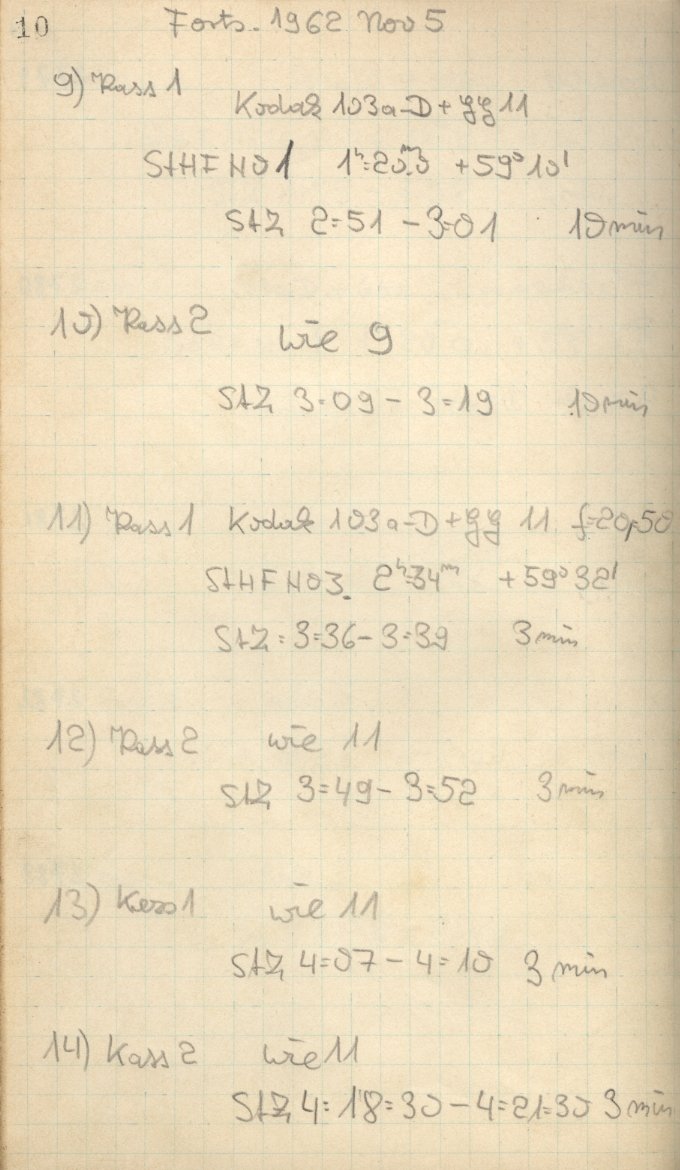 10
Forts. 1962 Nov 5
9) Kass 1
Kodak 103a-D + GG 11
StHF N01 1h=20m.3 +59°10'
StZ 2=51 - 3=01 10 min
10) Kass 2 wie 9
StZ 3=09 - 3=19 10 min
11) Kass 1 Kodak 103a-D + GG 11 f=20,50
StHF N03. 2h=34m +59°32'
StZ = 3=36 - 3=39 3 min
12) Kass 2 wie 11
StZ 3=49 - 3=52 3 min
13) Kass 1 wie 11
StZ 4=07 - 4=10 3 min
14) Kass 2 wie 11
StZ 4=18=30 - 4=21=30 3 min